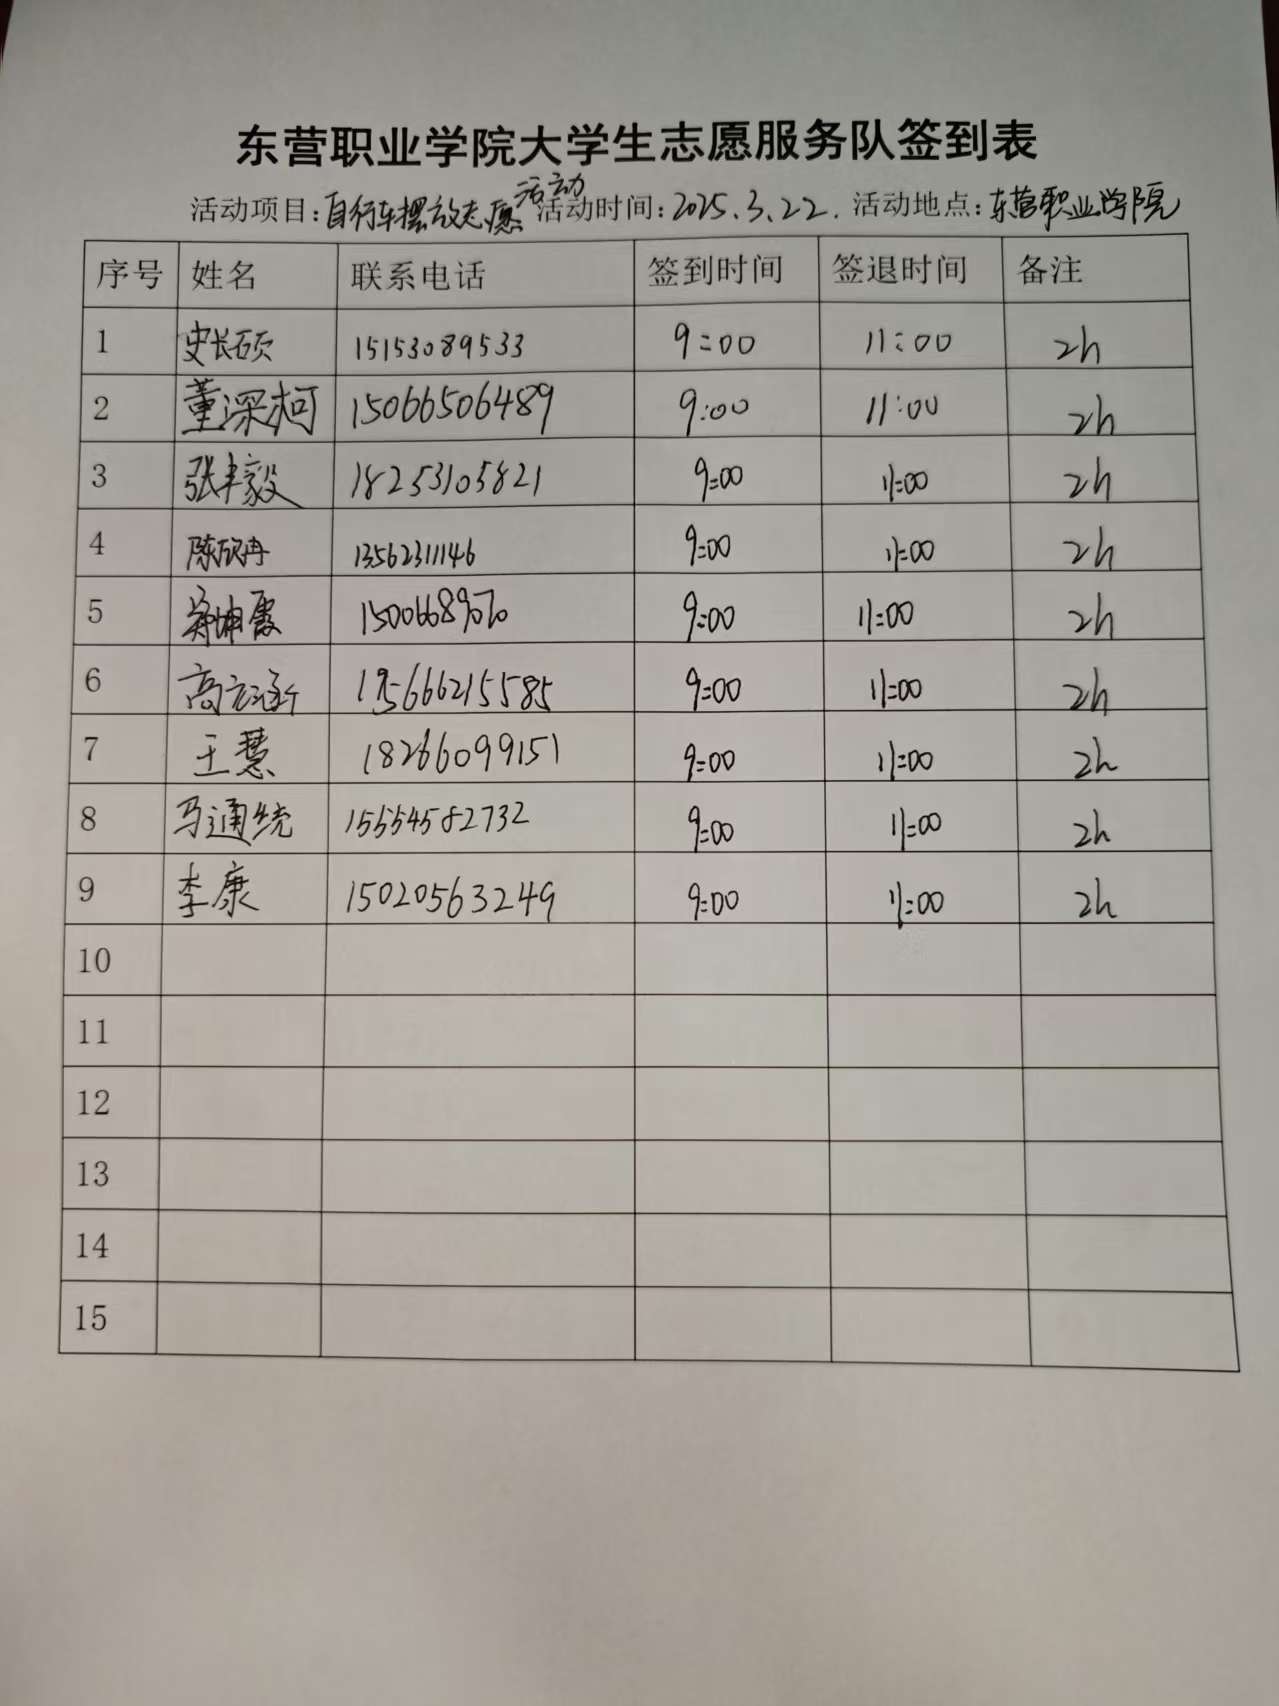 东营职业学院大学生志愿服务队签到表
活动项目:自行车摆放志愿活动 活动时间:2025.3.22. 活动地点:东营职业学院
序号 姓名 联系电话 签到时间 签退时间 备注
1 史长硕 15153089533 9:00 11:00 2h
2 董深柯 15066506489 9:00 11:00 2h
3 张丰毅 18253105821 9:00 11:00 2h
4 陈欣冉 13562311146 9:00 11:00 2h
5 郑坤霞 15006689070 9:00 11:00 2h
6 高云涵 9:00 11:00 2h
7 王慧 18266099151 9:00 11:00 2h
8 马通统 15554582732 9:00 11:00 2h
9 李康 15020563249 9:00 11:00 2h
10
11
12
13
14
15